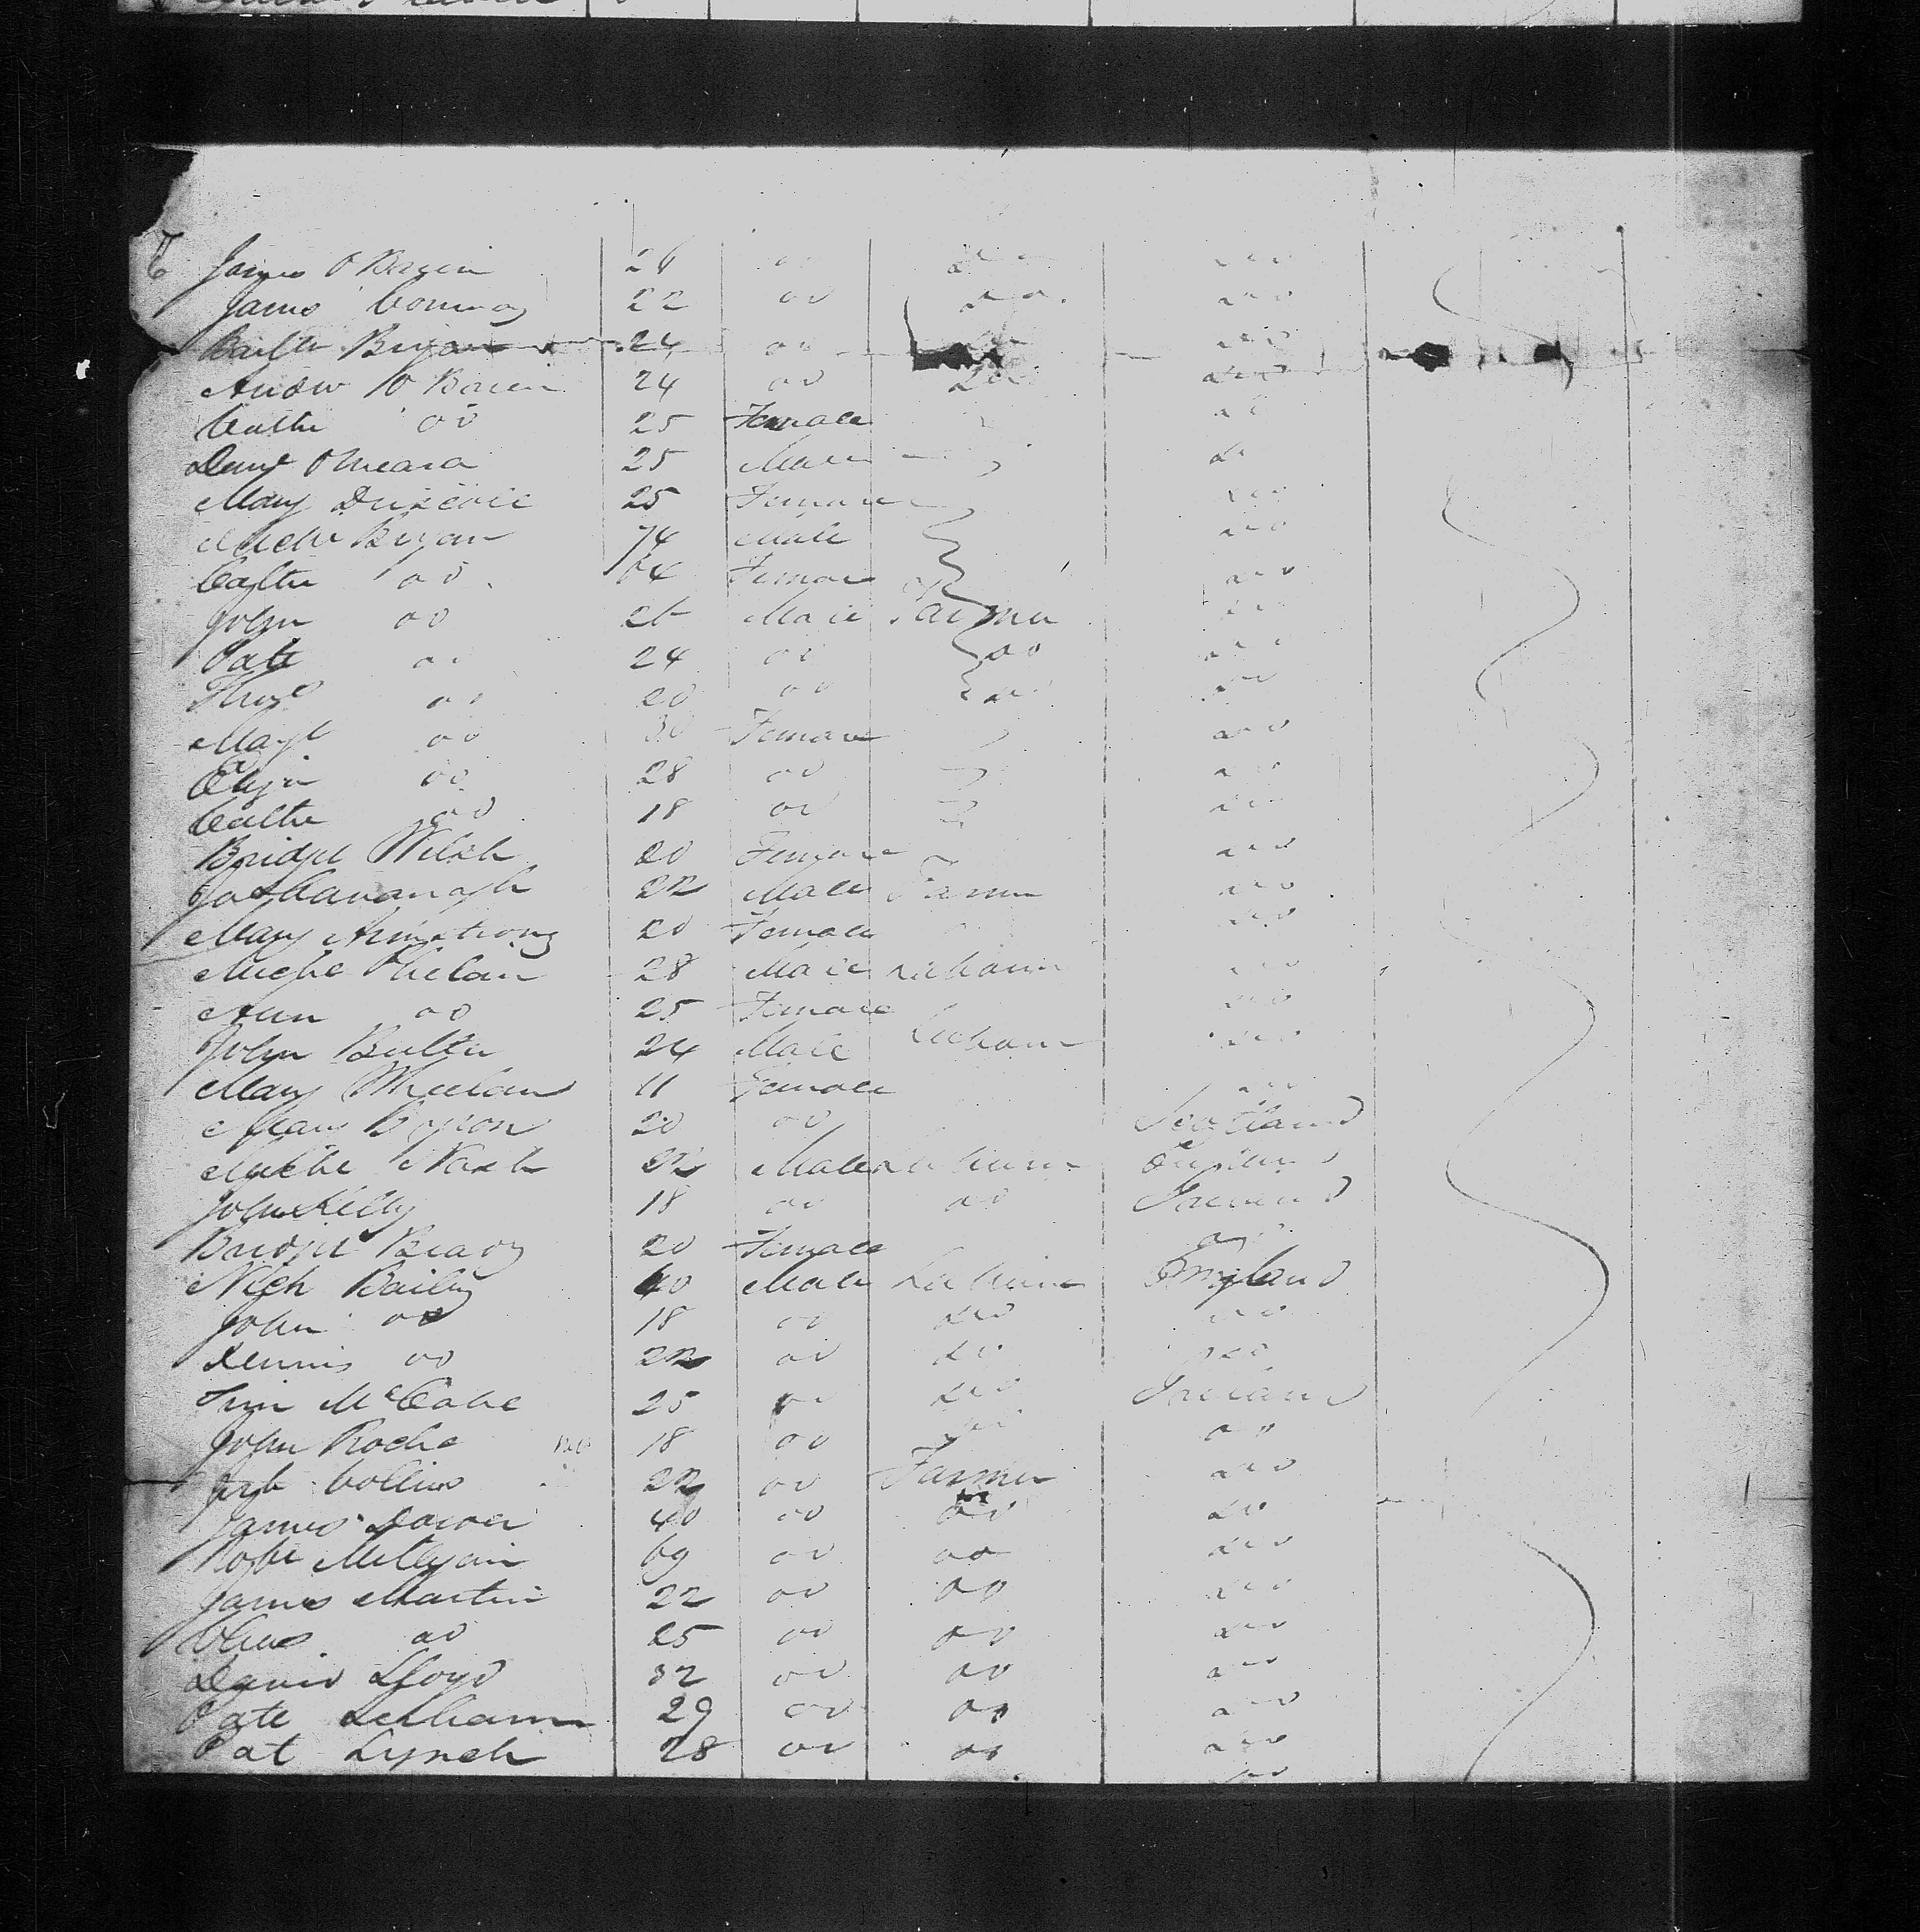 James O Brien 26 do do do
James Conway 22 do do do
Bryan 24 do do
Andw O Brien 24 do do do
Cathe do 25 Female do
O Meara 25 Male do
Mary Driscoll 25 Female do
Miche Bryan 74 Male do
Cathe do 64 Female do
John do 26 Male Farmer do
Patk do 24 do do do
Thos do 20 do do do
Margt do 30 Female do
Eliza do 28 do do
Cathe do 18 do do
Bridget Welsh 20 Female do
Jas Cavanagh 22 Male Farmer do
Mary Armstrong 20 Female do
Miche Phelan 28 Male do
Ann do 25 Female do
John Butler 24 Male do
Mary Wheelan 11 Female do
Mary Byron 20 do Scotland
Miche Nash 22 Male England
John Kelly 18 do do Ireland
Bridget Brady 20 Female do
Nich Baily 40 Male England
John do 18 do do do
Dennis do 22 do do do
Tim McCabe 25 do do Ireland
John Roche 18 do do do
Collins 22 do Farmer do
James 40 do do do
Robt 69 do do do
James Martin 22 do do do
Chas do 25 do do do
David Lloyd 32 do do do
Patk 29 do do do
Pat Lynch 28 do do do
do